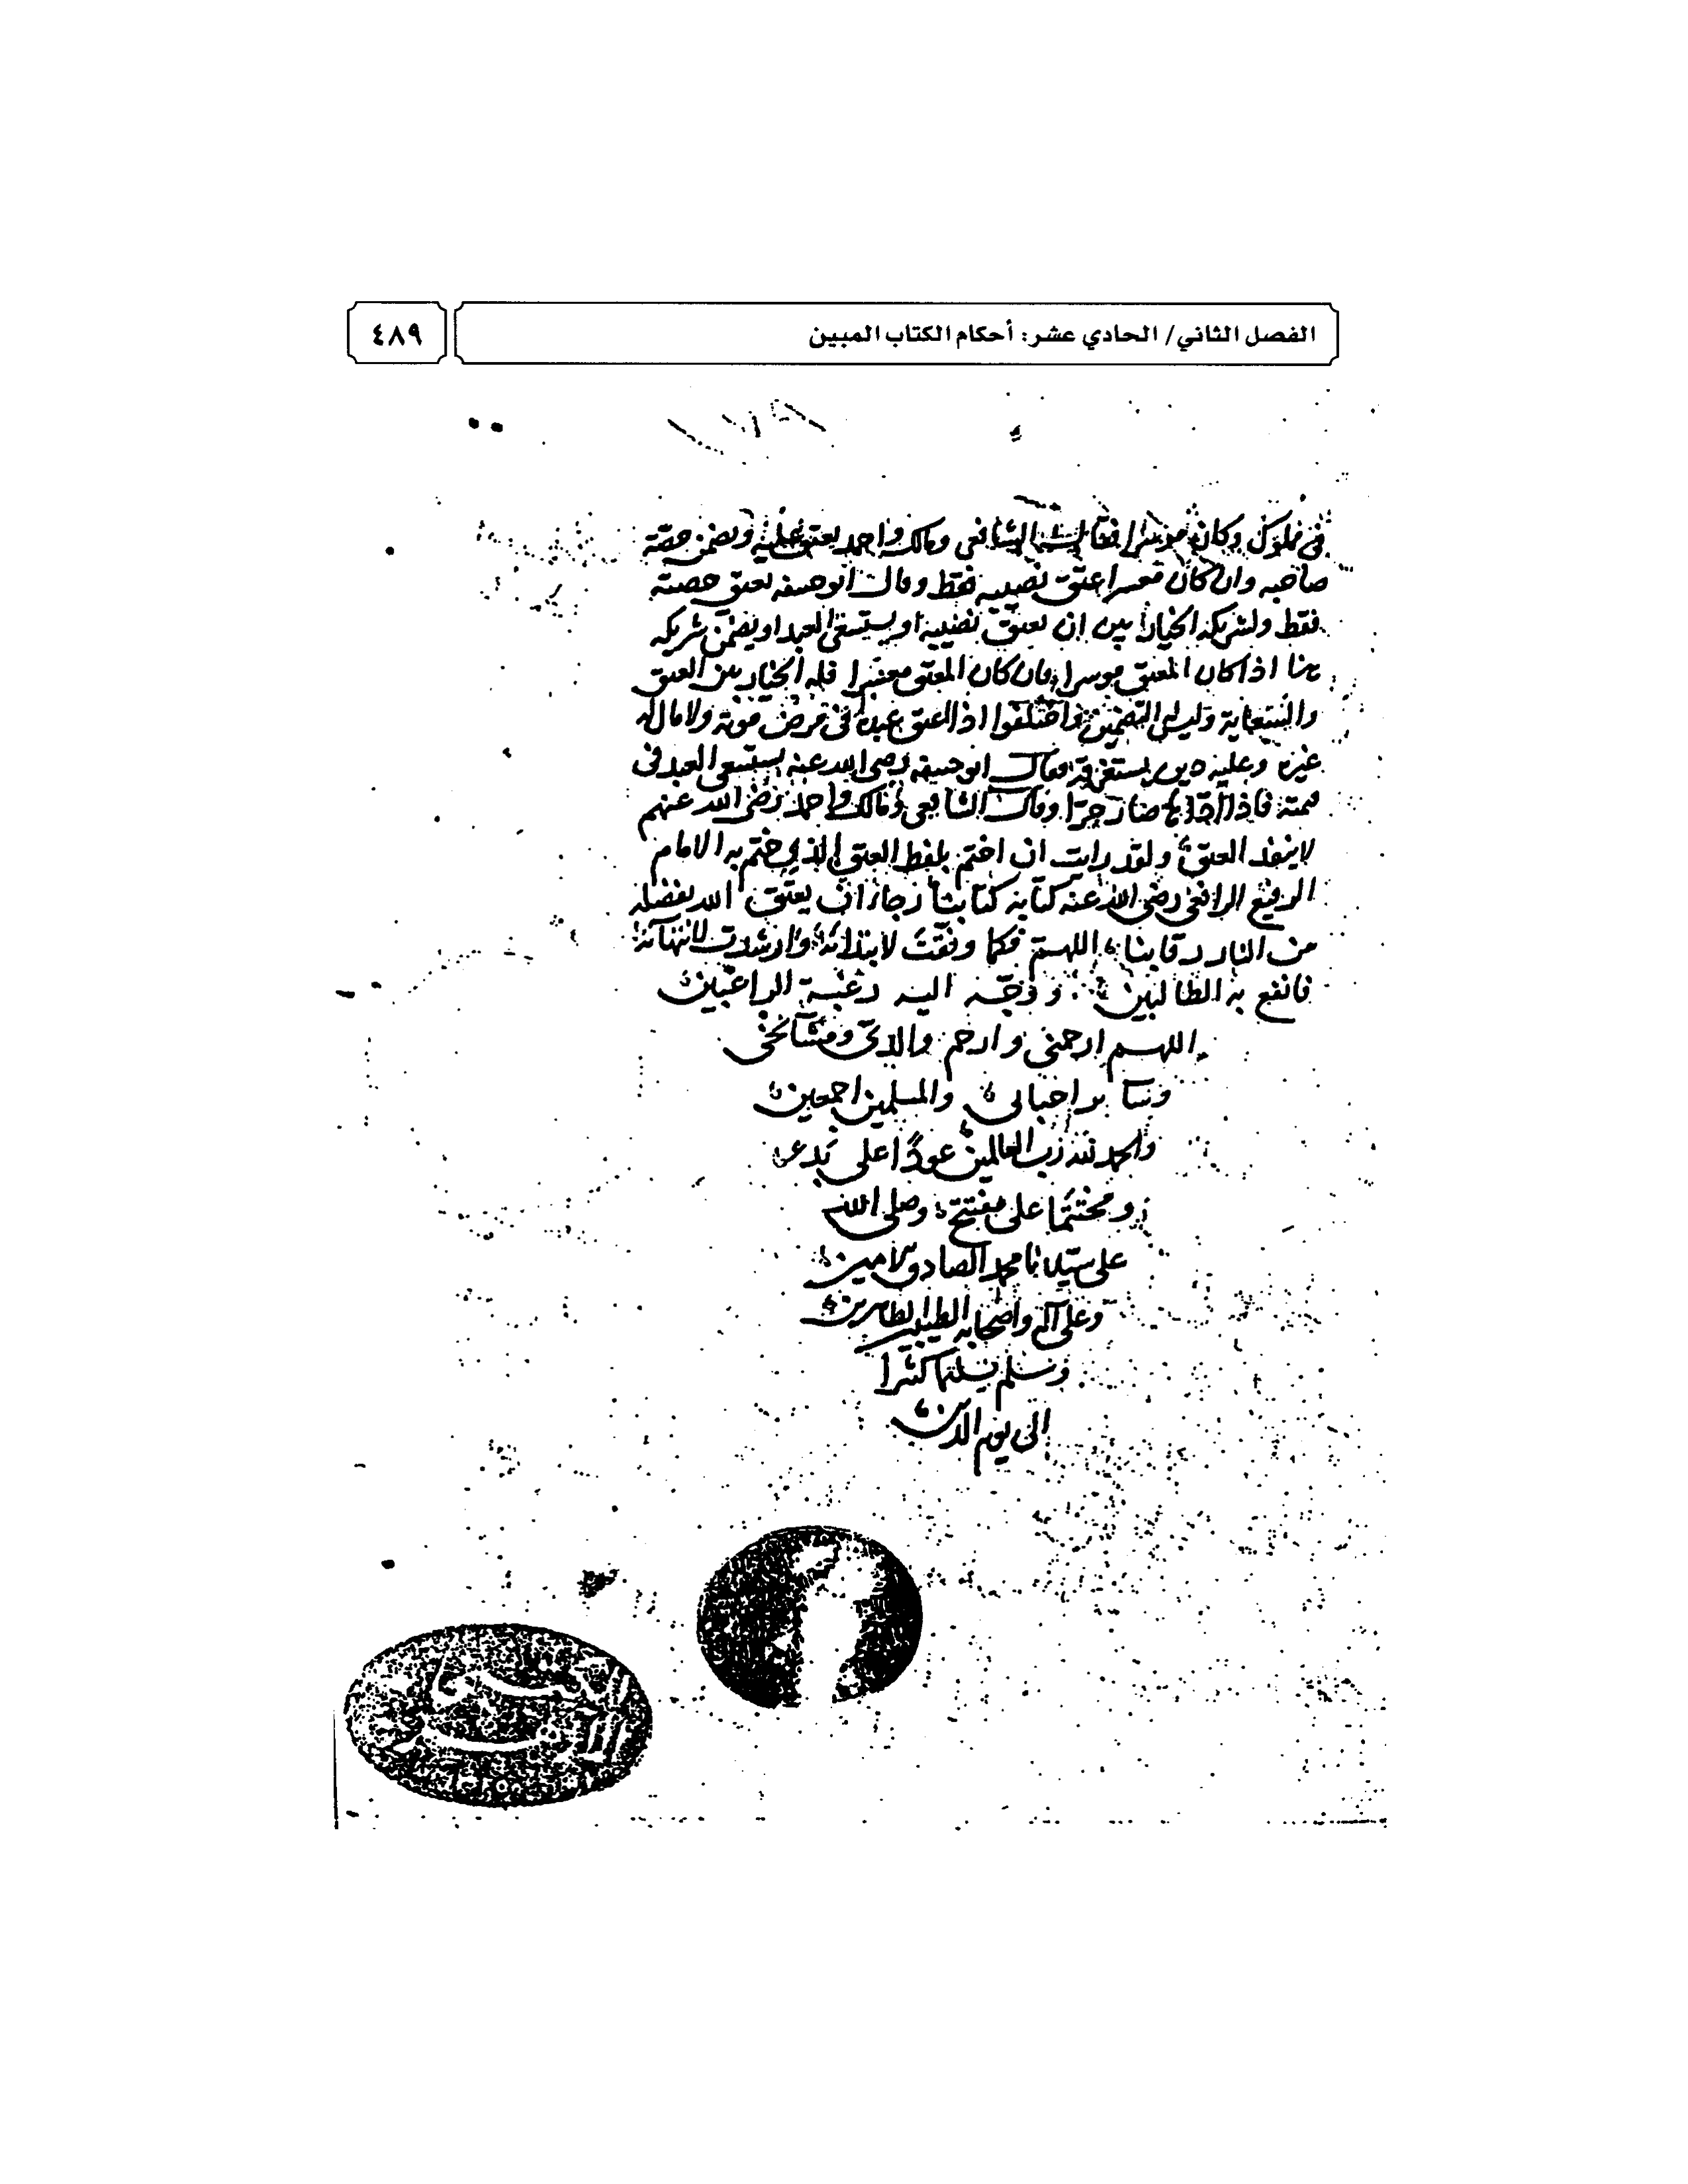 الفصل الثاني/ الحادي عشر: أحكام الكتاب المبين
٤٨٩
في مملوك وكان موسرا فقال الشافعي ومالك واحمد يعتق عليه ويضمن حصّة
صاحبه وان كان معسرا عتق نصيبه فقط وقال ابو حنيفه يعتق حصته
فقط ولشريكه الخيار بين ان يعتق نصيبه او يستسعى العبد او يضمن شريكه
هذا اذا كان المعتق موسرا فان كان المعتق معسرا فله الخيار بين العتق
والسعاية وليس له التضمين واختلفوا اذا اعتق عبده في مرض موته ولا مال له
غيره وعليه دين يستغرقه فقال ابو حنيفه رضى الله عنه يستسعى العبد في
قيمته فاذا اداها صار حرّا وقال الشافعي ومالك واحمد رضى الله عنهم
لا ينفذ العتق ولقد رايت ان اختم بلفظ العتق الذي ختم به الامام
الرفيع الرافعي رضى الله عنه كتابه كتابنا رجاء ان يعتق الله بفضله
من النار رقابنا اللهم فكما وفقت لابتدائه وارشدت لانتهائه
فانفع به الطالبين ووجّه اليه رغبة الراغبين
اللهم ارحمنى وارحم والديّ ومشائخى
وسائر احبابى والمسلمين اجمعين
والحمد لله رب العالمين عودًا على بدء
ومختتما على مفتتح وصلى الله
على سيّدنا محمد الصادق الامين
وعلى آله واصحابه الطيبين الطاهرين
وسلم تسليما كثيرا
الى يوم الدين